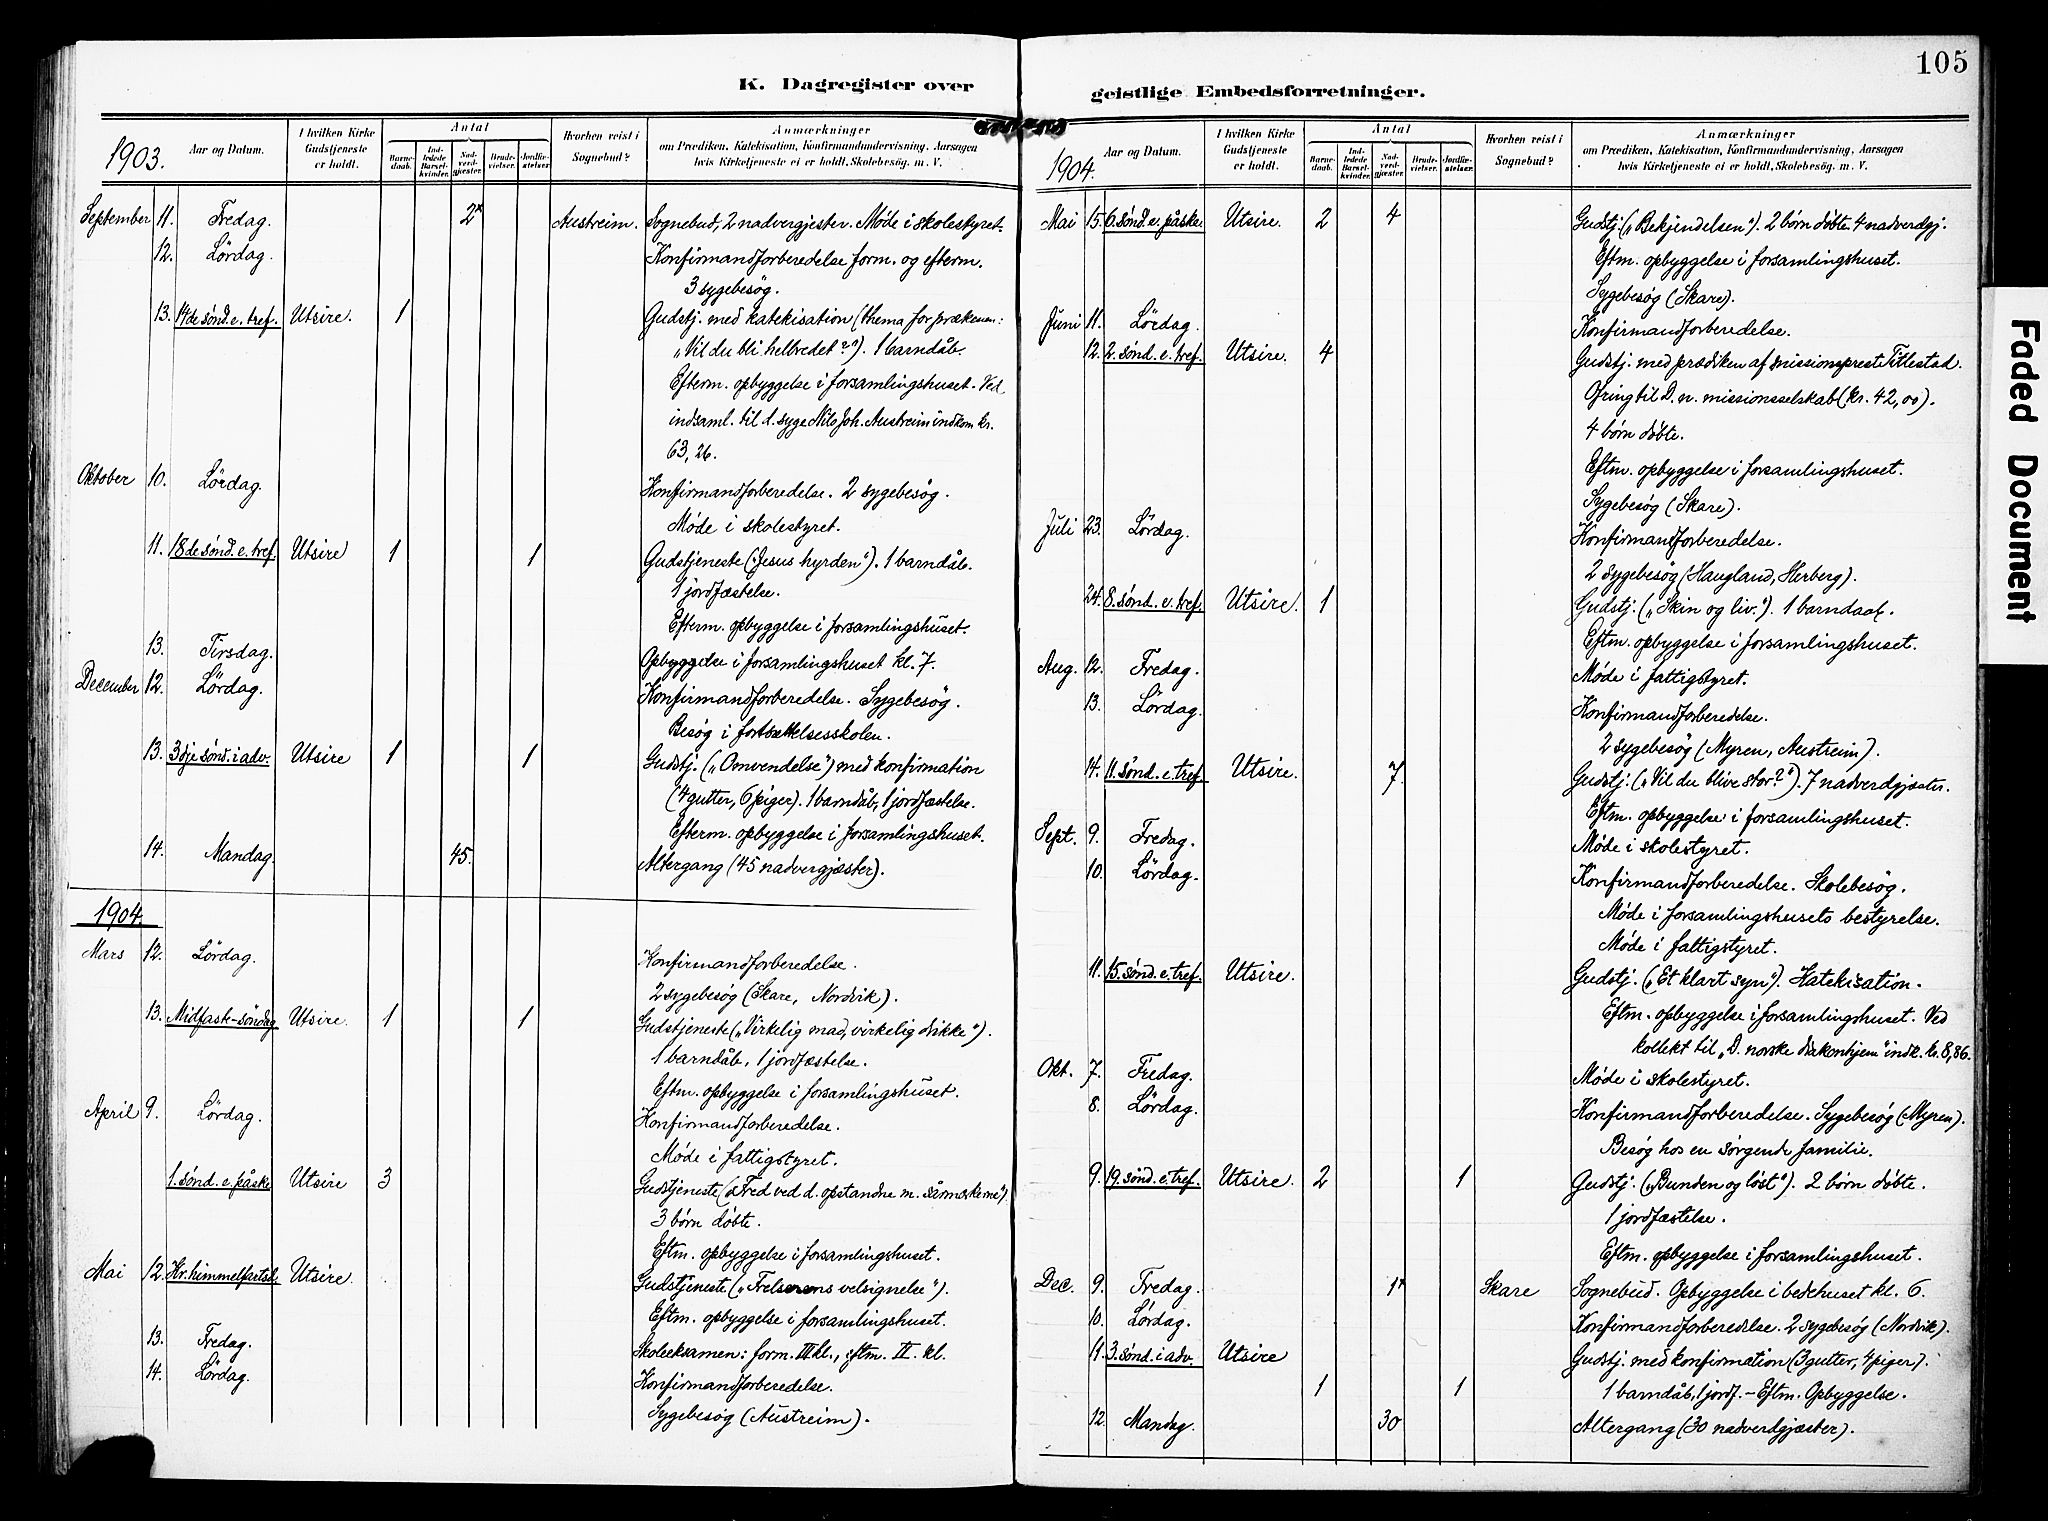 105
K. Dagregister over
geistlige Embedsforretninger.
Faded Document
1903.
Aar og Datum.
I hvilken Kirke Gudstjeneste er holdt.
Antal
Barnedaab.
Indledede Barselkvinder.
Nadverdgjæster.
Brudevielser.
Jordfæstelser.
Hvorhen reist i Sognebud?
Anmærkninger
om Prædiken, Katekisation, Konfirmandundervisning, Aarsagen
hvis Kirketjeneste ei er holdt, Skolebesøg. m. V.
September 11. Fredag. 2x Austreim. Sognebud, 2 nadvergjester. Møde i skolestyret.
12. Lördag. Konfirmandforberedelse form. og efterm.
3 sygebesøg.
13. 14de sönd. e. tref. Utsire. 1 Gudstj. med katekisation (thema for prækenen:
„Vil du bli helbredet?"). 1 barndåb.
Efterm. opbyggelse i forsamlingshuset. Ved
indsaml. til d. syge Nils Joh. Austreim indkom kr.
63,26.
Oktober 10. Lördag. Konfirmandforberedelse. 2 sygebesøg.
Møde i skolestyret.
11. 18de sönd. e. tref. Utsire 1 1 Gudstjeneste („Jesus hyrden"). 1 barndåb.
1 jordfæstelse.
Efterm. opbyggelse i forsamlingshuset.
13. Tirsdag. Opbyggelse i forsamlingshuset kl. 7.
December 12. Lördag. Konfirmandforberedelse. Sygebesøg.
Besøg i fortsættelsesskolen.
13. 3dje sönd. i adv. Utsire 1 1 Gudstj. („Omvendelse") med konfirmation
(4 gutter, 6 piger). 1 barndåb, 1 jordfæstelse.
Efterm. opbyggelse i forsamlingshuset.
14. Mandag. 45. Altergang (45 nadvergjæster).
1904.
Mars 12. Lördag. Konfirmandforberedelse.
2 sygebesøg (Skare, Nordvik).
13. Midfaste-söndag Utsire. 1 1 Gudstjeneste („Virkelig mad, virkelig drikke").
1 barndåb, 1 jordfæstelse.
Eftm. opbyggelse i forsamlingshuset.
April 9. Lördag. Konfirmandforberedelse.
Møde i fattigstyret.
1. sönd. e. påske Utsire 3 Gudstjeneste („Fred ved d. opstandne m. sårmærkerne")
3 børn døbte.
Eftm. opbyggelse i forsamlingshuset.
Mai 12. Kr. himmelfartsd. Utsire. Gudstjeneste („Frelserens velsignelse").
Eftm. opbyggelse i forsamlingshuset.
13. Fredag. Skoleeksamen: form. III kl., eftm. II. kl.
14. Lördag. Konfirmandforberedelse.
Sygebesøg (Austreim).
1904.
Aar og Datum.
I hvilken Kirke Gudstjeneste er holdt.
Antal
Barnedaab.
Indledede Barselkvinder.
Nadverdgjæster.
Brudevielser.
Jordfæstelser.
Hvorhen reist i Sognebud?
Anmærkninger
om Prædiken, Katekisation, Konfirmandundervisning, Aarsagen
hvis Kirketjeneste ei er holdt, Skolebesøg. m. V.
Mai 15. 6. sönd. e. påske. Utsire. 2 4 Gudstj. („Bekjendelsen"). 2 børn døbte. 4 nadverdgj.
Eftm. opbyggelse i forsamlingshuset.
Sygebesøg (Skare).
Juni 11. Lördag. Konfirmandforberedelse.
12. 2. sönd. e. tref. Utsire. 4 Gudstj. med prædiken af missionsprest Titlestad.
Ofring til D. n. missionsselskab (kr. 42,00).
4 børn døbte.
Eftm. opbyggelse i forsamlingshuset.
Sygebesøg (Skare).
Juli 23. Lördag. Konfirmandforberedelse.
2 sygebesøg (Haugland, Herberg).
24. 8. sönd. e. tref. Utsire. 1 Gudstj. („Skin og liv."). 1 barndaab.
Eftm. opbyggelse i forsamlingshuset.
Aug. 12. Fredag. Møde i fattigstyret.
13. Lördag. Konfirmandforberedelse.
2 sygebesøg (Myren, Austreim).
14. 11. sönd. e. tref Utsire. 7. Gudstj. („Vil du blive stor?"). 7 nadverdgjæster.
Eftm. opbyggelse i forsamlingshuset.
Sept. 9. Fredag. Møde i skolestyret.
10. Lördag. Konfirmandforberedelse. Skolebesøg.
Møde i forsamlingshusets bestyrelse.
Møde i fattigstyret.
11. 15. sönd. e. tref. Utsire. Gudstj. („Et klart syn"). Katekisation.
Eftm. opbyggelse i forsamlingshuset. Ved
kollekt til „D. norske diakonhjem" indk. kr. 8,86.
Okt. 7. Fredag. Møde i skolestyret.
8. Lördag. Konfirmandforberedelse. Sygebesøg (Myren).
Besøg hos en sørgende familie.
9. 19. sönd. e. tref. Utsire. 2 1 Gudstj. („Bunden og løst"). 2 børn døbte.
1 jordfæstelse.
Eftm. opbyggelse i forsamlingshuset.
Dec. 9. Fredag. 1x Skare Sognebud. Opbyggelse i bedehuset kl. 6.
10. Lördag. Konfirmandforberedelse. 2 sygebesøg (Nordvik).
11. 3. sönd. i adv. Utsire Gudstj. med konfirmation (3 gutter, 4 piger).
1 1 1 barndåb, 1 jordf. – Eftm. Opbyggelse.
12. Mandag. 30 Altergang (30 nadverdgjæster).